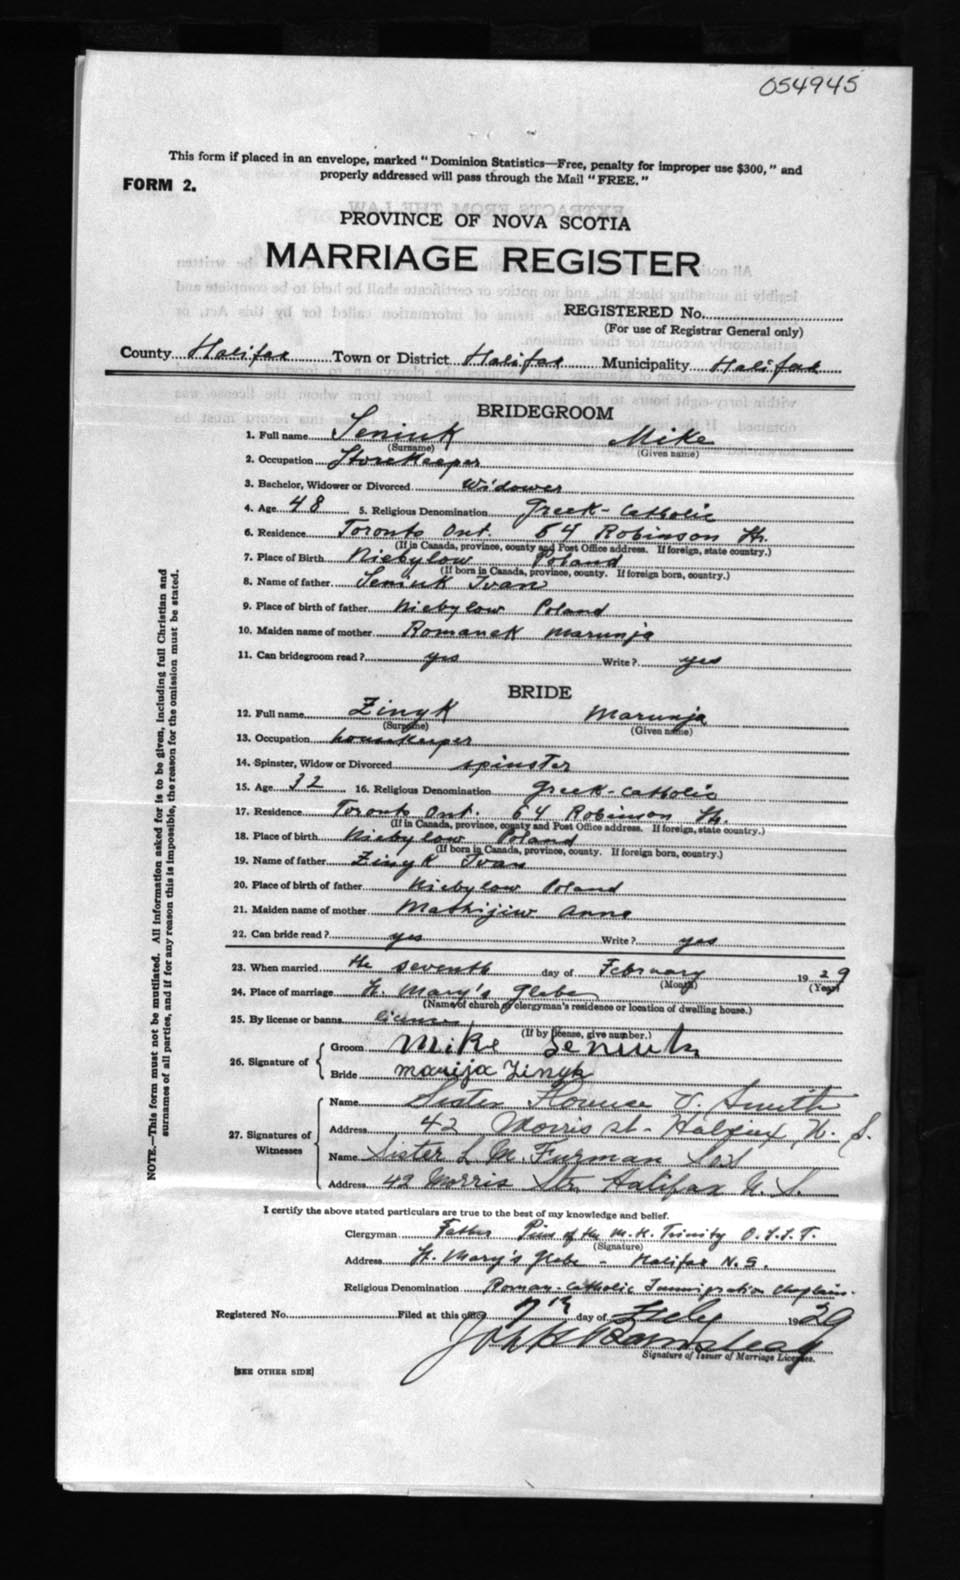 054945
This form if placed in an envelope, marked "Dominion Statistics—Free, penalty for improper use $300," and
properly addressed will pass through the Mail "FREE."
FORM 2.
PROVINCE OF NOVA SCOTIA
MARRIAGE REGISTER
REGISTERED No.
(For use of Registrar General only)
County Halifax Town or District Halifax Municipality Halifax
BRIDEGROOM
1. Full name Seniuk Mike
(Surname) (Given name)
2. Occupation Storekeeper
3. Bachelor, Widower or Divorced Widower
4. Age 48 5. Religious Denomination Greek-Catholic
6. Residence Toronto Ont. 64 Robinson St.
(If in Canada, province, county and Post Office address. If foreign, state country.)
7. Place of Birth Niebylow Poland
(If born in Canada, province, county. If foreign born, country.)
8. Name of father Seniuk Ivan
9. Place of birth of father Niebylow Poland
10. Maiden name of mother Romanek Marunja
11. Can bridegroom read? yes Write? yes
BRIDE
12. Full name Zinyk Marunja
(Surname) (Given name)
13. Occupation housekeeper
14. Spinster, Widow or Divorced spinster
15. Age 32 16. Religious Denomination Greek-Catholic
17. Residence Toronto Ont. 64 Robinson St.
(If in Canada, province, county and Post Office address. If foreign, state country.)
18. Place of birth Niebylow Poland
(If born in Canada, province, county. If foreign born, country.)
19. Name of father Zinyk Ivan
20. Place of birth of father Niebylow Poland
21. Maiden name of mother Mathijiw Anna
22. Can bride read? yes Write? yes
23. When married the seventh day of February 1929
(Month) (Year)
24. Place of marriage St. Mary's Glebe
(Name of church or clergyman's residence or location of dwelling house.)
25. By license or banns license
(If by license, give number.)
26. Signature of
Groom Mike Seniuk
Bride Marija Zinyk
27. Signatures of Witnesses
Name Sister Florence V. Smith
Address 42 Morris St. Halifax N. S.
Name Sister L. M. Furman
Address 42 Morris Str. Halifax N. S.
I certify the above stated particulars are true to the best of my knowledge and belief.
Clergyman Father Pius of the M. H. Trinity O.S.S.T.
(Signature)
Address St. Mary's Glebe - Halifax N.S.
Religious Denomination Roman-Catholic Immigration Chaplain.
Registered No. Filed at this office 7th day of 1929
Signature of Issuer of Marriage Licenses.
[SEE OTHER SIDE]
NOTE.—This form must not be mutilated. All information asked for is to be given, including full Christian and
surnames of all parties, and if for any reason this is impossible, the reason for the omission must be stated.